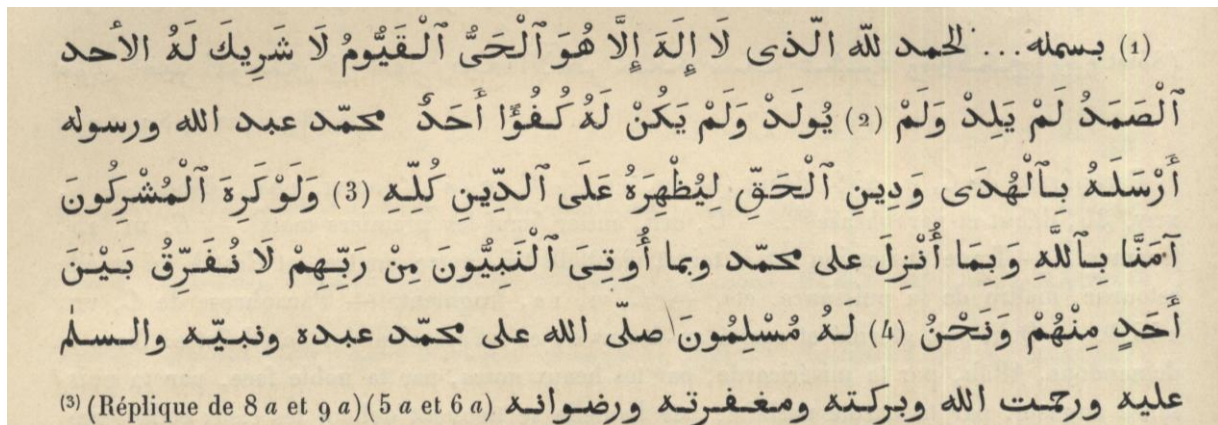 (1) بسمله... الحمد للّه الّذى لَا إِلَهَ إِلَّا هُوَ ٱلْحَىُّ ٱلْقَيُّومُ لَا شَرِيكَ لَهُ الأحد
ٱلْصَمَدُ لَمْ يَلِدْ وَلَمْ (2) يُولَدْ وَلَمْ يَكُنْ لَهُ كُفُؤًا أَحَدٌ محمّد عبد الله ورسوله
أَرْسَلَهُ بِٱلْهُدَى وَدِينِ ٱلْحَقِّ لِيُظْهِرَهُ عَلَى ٱلدِّينِ كُلِّهِ (3) وَلَوْ كَرِهَ ٱلْمُشْرِكُونَ
آمَنَّا بِٱللَّهِ وَبِمَا أُنْزِلَ على محمّد وبما أُوتِىَ ٱلْنَبِيُّونَ مِنْ رَبِّهِمْ لَا نُفَرِّقُ بَيْنَ
أَحَدٍ مِنْهُمْ وَنَحْنُ (4) لهُ مُسْلِمُونَ صلّى الله على محمّد عبده ونبيّه والسلم
عليه ورحمت الله وبركته ومغفرته ورضوانه (5 a et 6 a) (Réplique de 8 a et 9 a) (3)